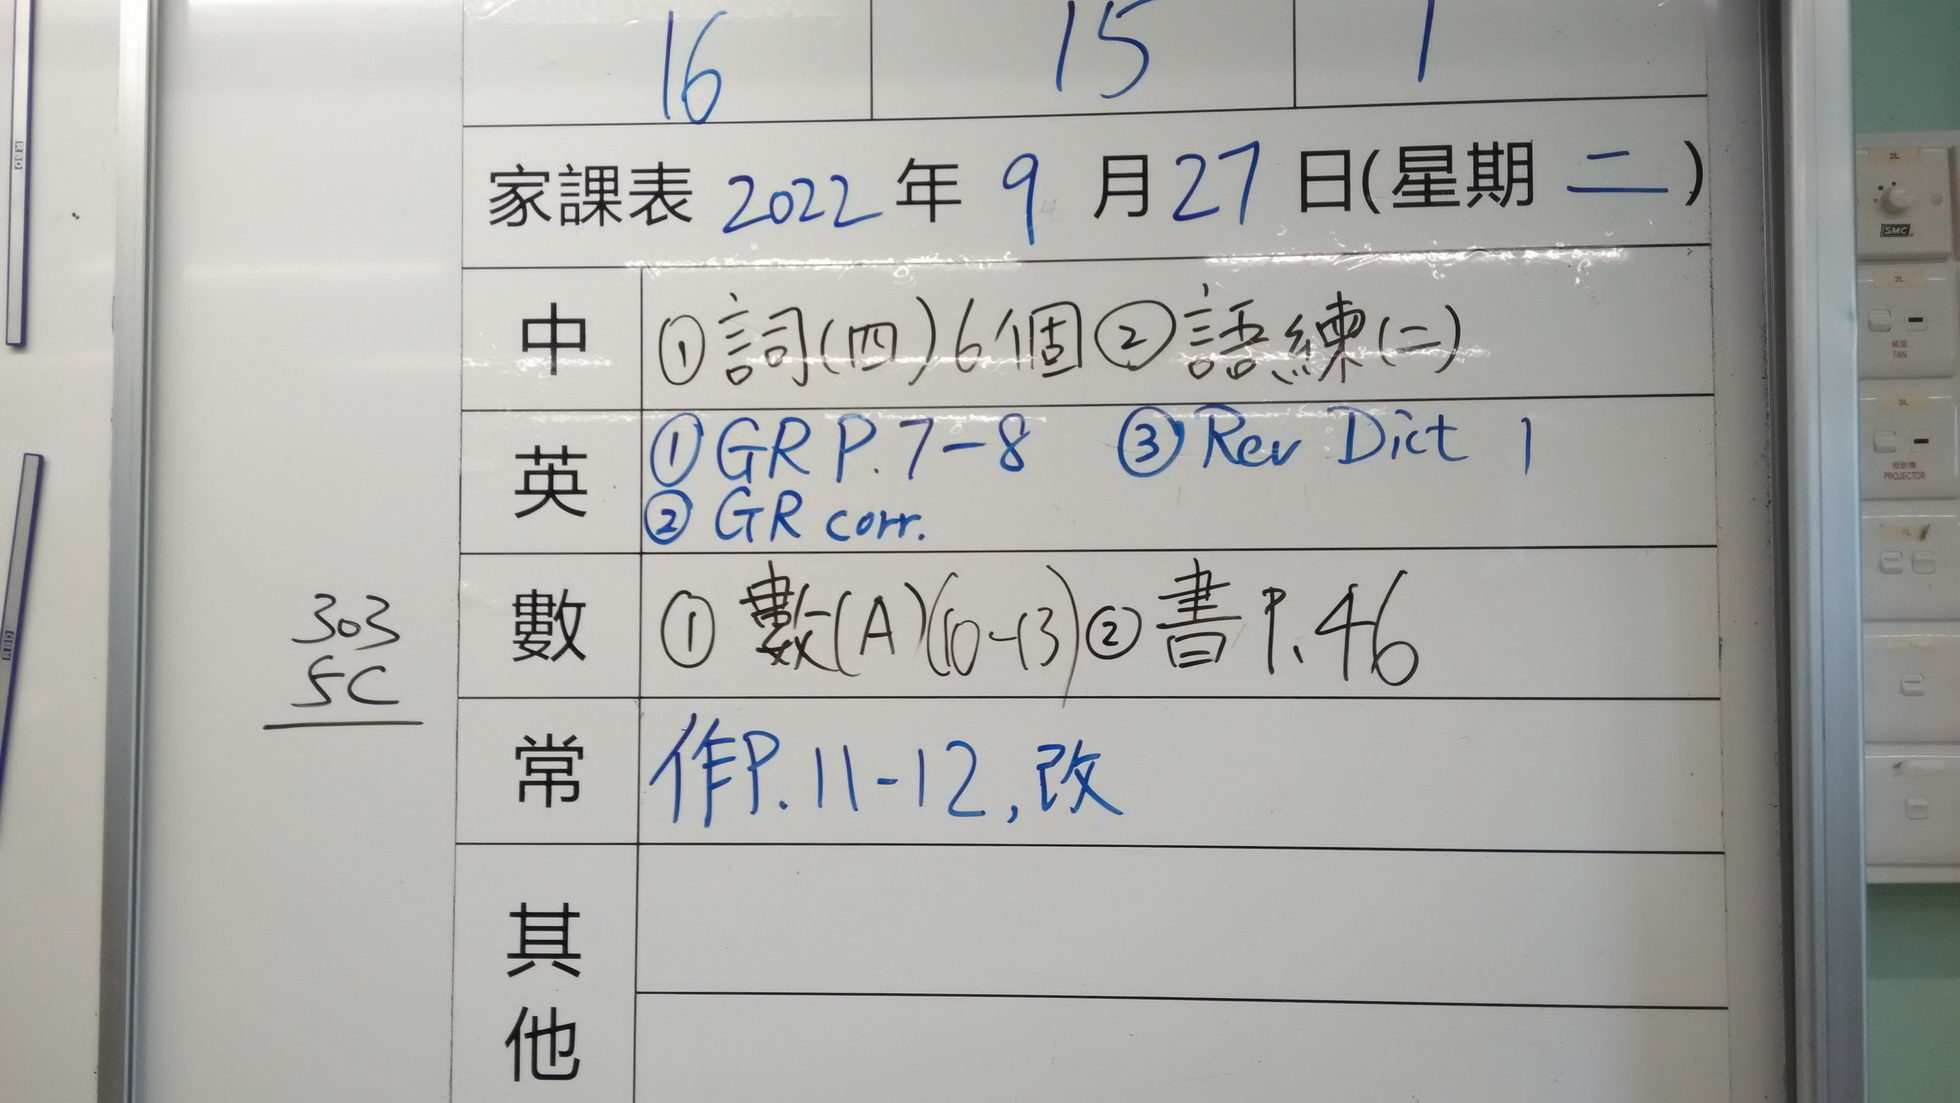 16 15 1
家課表 2022 年 9 月 27 日(星期 二)
中 ①詞(四)6個②語練(二)
英 ①GR P.7-8 ③Rev Dict 1
②GR corr.
數 ①數(A)(10-13)②書P.46
303
5C
常 作P.11-12,改
其
他
2L
SMC
2L
風扇
FAN
2L
投影機
PROJECTOR
1L